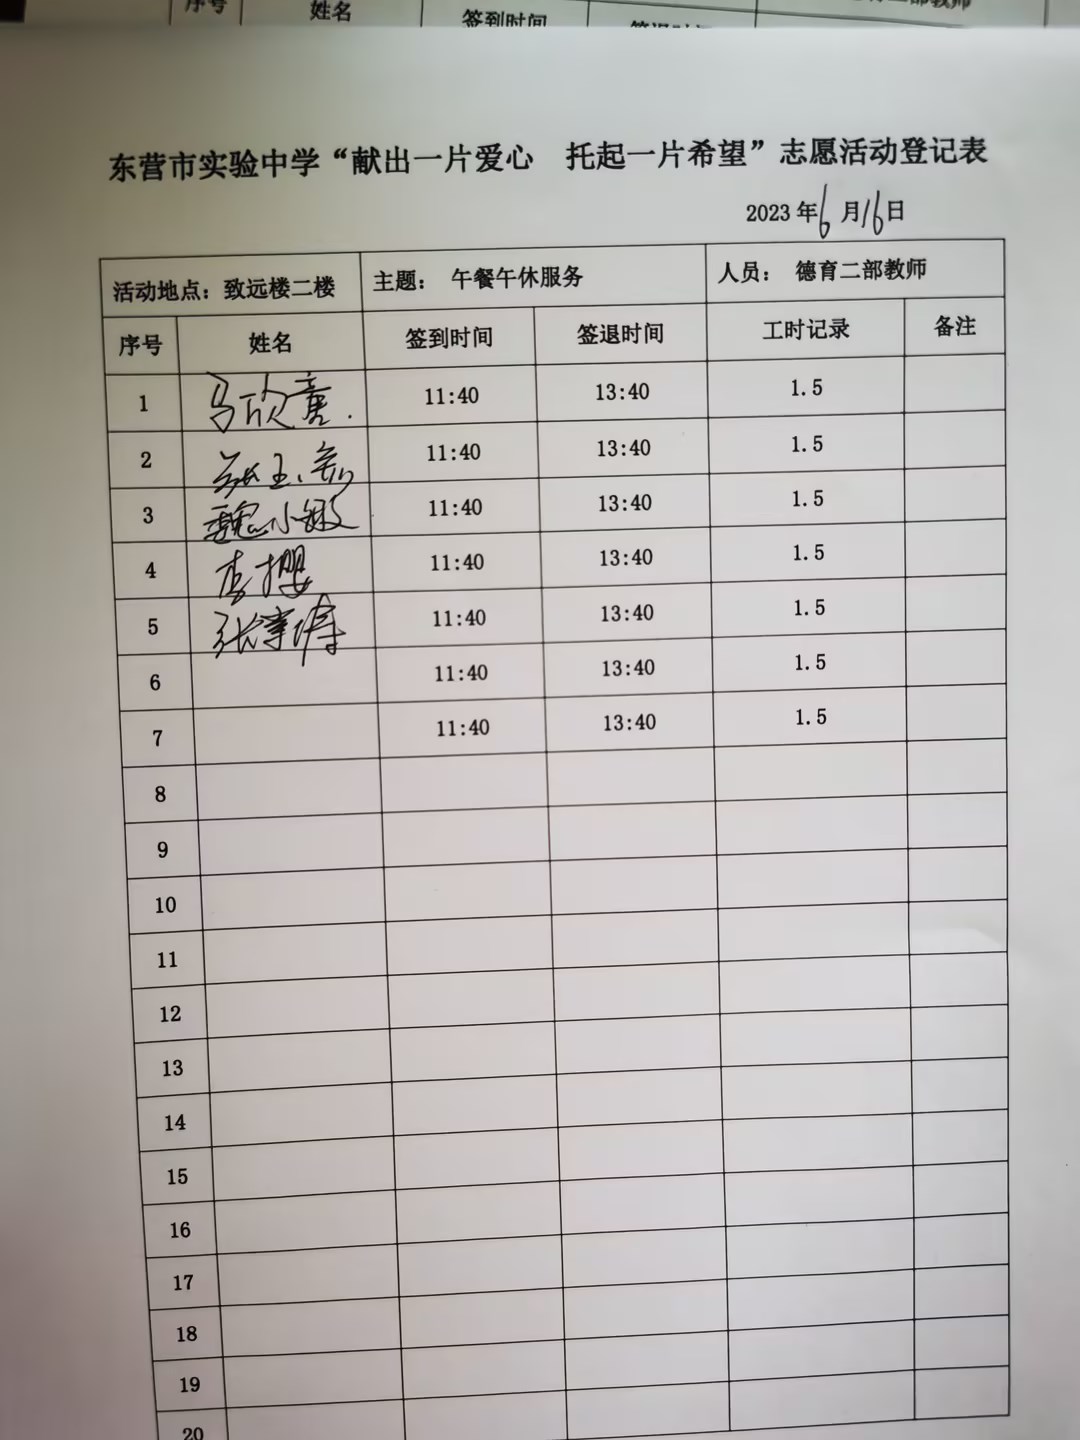 序号 姓名 签到时间
东营市实验中学“献出一片爱心 托起一片希望”志愿活动登记表
2023年6月16日
活动地点：致远楼二楼 主题： 午餐午休服务 人员： 德育二部教师
序号 姓名 签到时间 签退时间 工时记录 备注
1 马欣 11:40 13:40 1.5
2 11:40 13:40 1.5
3 魏小 11:40 13:40 1.5
4 李樱 11:40 13:40 1.5
5 张 11:40 13:40 1.5
6 11:40 13:40 1.5
7 11:40 13:40 1.5
8
9
10
11
12
13
14
15
16
17
18
19
20